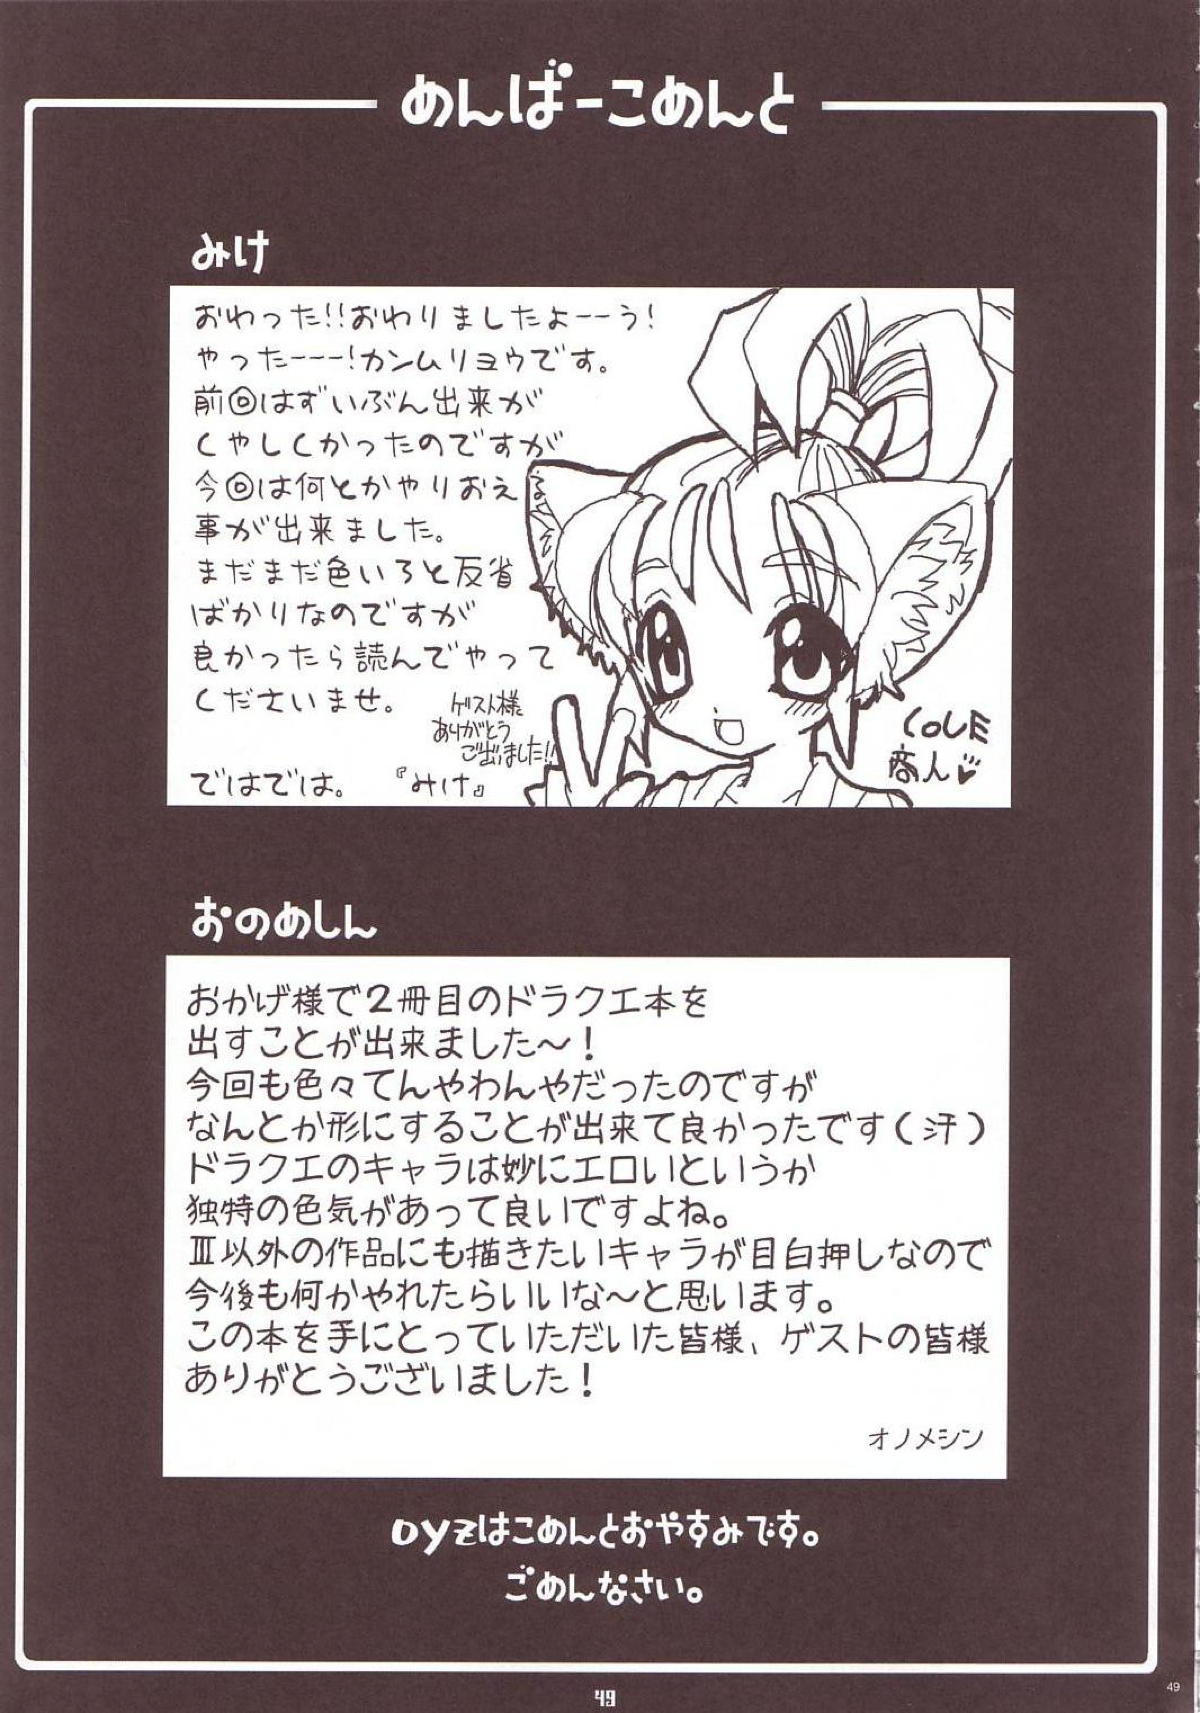 めんばーこめんと
みけ
おわった!!おわりましたよーーう!
やったーーー!カンムリョウです。
前回はずいぶん出来が
くやしくかったのですが
今回は何とかやりおえる
事が出来ました。
まだまだ色いろと反省
ばかりなのですが
良かったら読んでやって
くださいませ。
ゲスト様
ありがとう
ご出いました!!
ではでは。 『みけ』
LOVE
商人♡
おのめしん
おかげ様で2冊目のドラクエ本を
出すことが出来ました〜!
今回も色々てんやわんやだったのですが
なんとか形にすることが出来て良かったです(汗)
ドラクエのキャラは妙にエロいというか
独特の色気があって良いですよね。
Ⅲ以外の作品にも描きたいキャラが目白押しなので
今後も何かやれたらいいな〜と思います。
この本を手にとっていただいた皆様、ゲストの皆様
ありがとうございました!
オノメシン
OYZはこめんとおやすみです。
ごめんなさい。
49
49